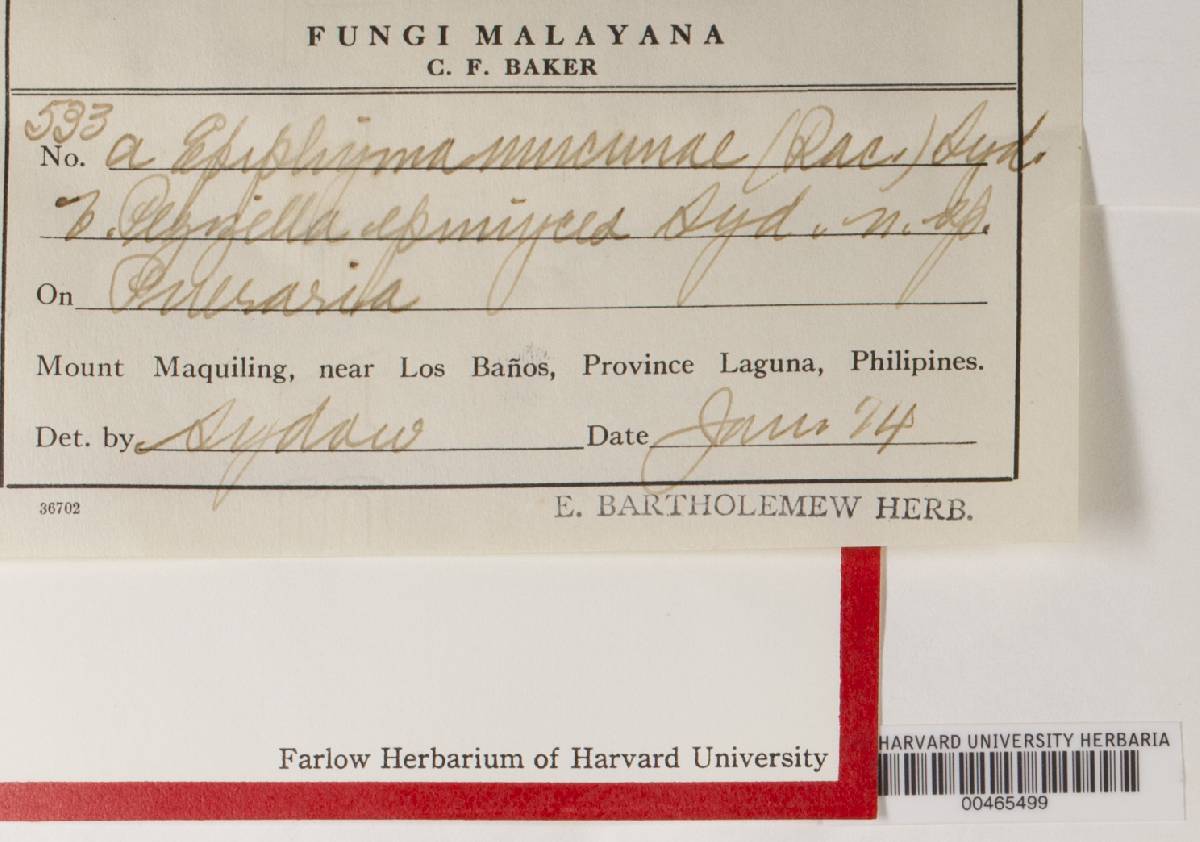 FUNGI MALAYANA
C. F. BAKER
593
No. a Epiphyma mucunae (Rac.) Syd.
b. Pazziella epimyces Syd. n. sp.
On Pueraria
Mount Maquiling, near Los Baños, Province Laguna, Philipines.
Det. by Sydow Date Jan. 24
36702
E. BARTHOLEMEW HERB.
Farlow Herbarium of Harvard University
HARVARD UNIVERSITY HERBARIA
00465499